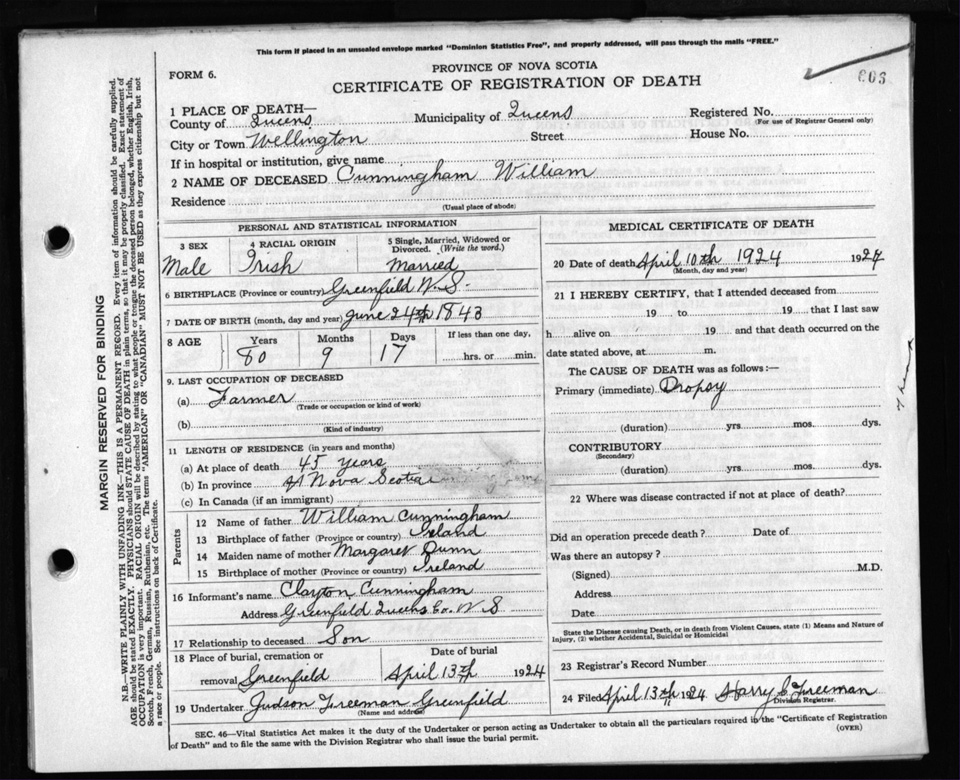 This form if placed in an unsealed envelope marked "Dominion Statistics Free", and properly addressed, will pass through the mails "FREE."
PROVINCE OF NOVA SCOTIA
FORM 6.
CERTIFICATE OF REGISTRATION OF DEATH
603
1 PLACE OF DEATH—
County of Queens Municipality of Queens Registered No.
(For use of Registrar General only)
City or Town Wellington Street House No.
If in hospital or institution, give name
2 NAME OF DECEASED Cunningham William
Residence
(Usual place of abode)
PERSONAL AND STATISTICAL INFORMATION
3 SEX 4 RACIAL ORIGIN 5 Single, Married, Widowed or Divorced. (Write the word.)
Male Irish Married
6 BIRTHPLACE (Province or country) Greenfield N.S.
7 DATE OF BIRTH (month, day and year) June 24th 1843
8 AGE Years Months Days If less than one day,
80 9 17 hrs. or min.
9. LAST OCCUPATION OF DECEASED
(a) Farmer
(Trade or occupation or kind of work)
(b)
(Kind of industry)
11 LENGTH OF RESIDENCE (in years and months)
(a) At place of death 45 years
(b) In province Nova Scotia
(c) In Canada (if an immigrant)
Parents
12 Name of father William Cunningham
13 Birthplace of father (Province or country) Ireland
14 Maiden name of mother Margaret Dunn
15 Birthplace of mother (Province or country) Ireland
16 Informant's name Clayton Cunningham
Address Greenfield Queens Co. N S
17 Relationship to deceased Son
18 Place of burial, cremation or Date of burial
removal Greenfield April 13th 1924
19 Undertaker Judson Freeman Greenfield
(Name and address)
MEDICAL CERTIFICATE OF DEATH
20 Date of death April 10th 1924 1924
(Month, day and year)
21 I HEREBY CERTIFY, that I attended deceased from
19 to 19 that I last saw
h alive on 19 and that death occurred on the
date stated above, at m.
The CAUSE OF DEATH was as follows:—
Primary (immediate) Dropsy
(duration) yrs mos. dys.
CONTRIBUTORY
(Secondary)
(duration) yrs. mos. dys.
22 Where was disease contracted if not at place of death?
Did an operation precede death? Date of
Was there an autopsy?
(Signed) M.D.
Address
Date
State the Disease causing Death, or in death from Violent Causes, state (1) Means and Nature of
Injury, (2) whether Accidental, Suicidal or Homicidal
23 Registrar's Record Number
24 Filed April 13th 1924 Harry C Freeman
Division Registrar.
SEC. 46—Vital Statistics Act makes it the duty of the Undertaker or person acting as Undertaker to obtain all the particulars required in the "Certificate of Registration
of Death" and to file the same with the Division Registrar who shall issue the burial permit.
(OVER)
MARGIN RESERVED FOR BINDING
N.B.—WRITE PLAINLY WITH UNFADING INK—THIS IS A PERMANENT RECORD. Every item of information should be carefully supplied.
AGE should be stated EXACTLY. PHYSICIANS should STATE CAUSE OF DEATH in plain terms, so that it may be properly classified. Exact statement of
OCCUPATION is very important. RACIAL ORIGIN will be described by stating to what people or tongue the deceased person belonged, whether English, Irish,
Scotch, French, German, Russian, Ruthenian, etc. The terms "AMERICAN" OR "CANADIAN" MUST NOT BE USED as they express citizenship but not
a race or people. See instructions on back of Certificate.